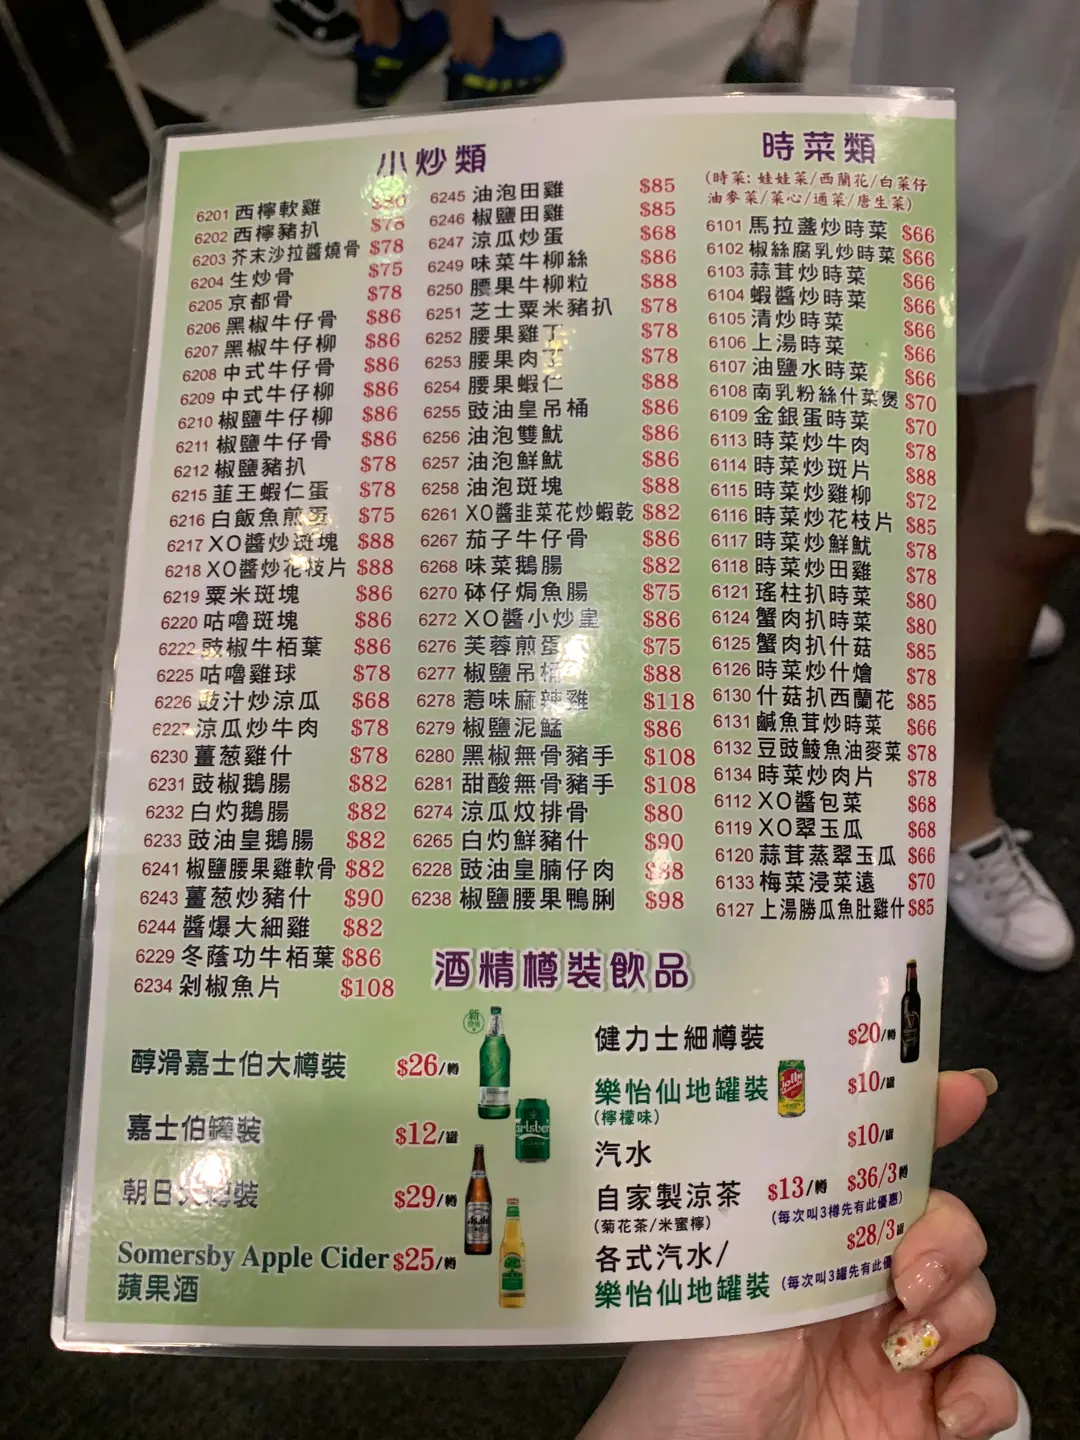 小炒類
6201 西檸軟雞 $80
6202 西檸豬扒 $78
6203 芥末沙拉醬燒骨 $78
6204 生炒骨 $75
6205 京都骨 $78
6206 黑椒牛仔骨 $86
6207 黑椒牛仔柳 $86
6208 中式牛仔骨 $86
6209 中式牛仔柳 $86
6210 椒鹽牛仔柳 $86
6211 椒鹽牛仔骨 $86
6212 椒鹽豬扒 $78
6215 韮王蝦仁蛋 $78
6216 白飯魚煎蛋 $75
6217 XO醬炒斑塊 $88
6218 XO醬炒花枝片 $88
6219 粟米斑塊 $86
6220 咕嚕斑塊 $86
6222 豉椒牛栢葉 $86
6225 咕嚕雞球 $78
6226 豉汁炒涼瓜 $68
6227 涼瓜炒牛肉 $78
6230 薑葱雞什 $78
6231 豉椒鵝腸 $82
6232 白灼鵝腸 $82
6233 豉油皇鵝腸 $82
6241 椒鹽腰果雞軟骨 $82
6243 薑葱炒豬什 $90
6244 醬爆大細雞 $82
6229 冬蔭功牛栢葉 $86
6234 剁椒魚片 $108
6245 油泡田雞 $85
6246 椒鹽田雞 $85
6247 涼瓜炒蛋 $68
6249 味菜牛柳絲 $86
6250 腰果牛柳粒 $88
6251 芝士粟米豬扒 $78
6252 腰果雞丁 $78
6253 腰果肉丁 $78
6254 腰果蝦仁 $88
6255 豉油皇吊桶 $86
6256 油泡雙魷 $86
6257 油泡鮮魷 $86
6258 油泡斑塊 $88
6261 XO醬韭菜花炒蝦乾 $82
6267 茄子牛仔骨 $86
6268 味菜鵝腸 $82
6270 砵仔焗魚腸 $75
6272 XO醬小炒皇 $86
6276 芙蓉煎蛋 $75
6277 椒鹽吊桶 $88
6278 惹味麻辣雞 $118
6279 椒鹽泥鯭 $86
6280 黑椒無骨豬手 $108
6281 甜酸無骨豬手 $108
6274 涼瓜炆排骨 $80
6265 白灼鮮豬什 $90
6228 豉油皇腩仔肉 $88
6238 椒鹽腰果鴨脷 $98
時菜類
(時菜: 娃娃菜/西蘭花/白菜仔
油麥菜/菜心/通菜/唐生菜)
6101 馬拉盞炒時菜 $66
6102 椒絲腐乳炒時菜 $66
6103 蒜茸炒時菜 $66
6104 蝦醬炒時菜 $66
6105 清炒時菜 $66
6106 上湯時菜 $66
6107 油鹽水時菜 $66
6108 南乳粉絲什菜煲 $70
6109 金銀蛋時菜 $70
6113 時菜炒牛肉 $78
6114 時菜炒斑片 $88
6115 時菜炒雞柳 $72
6116 時菜炒花枝片 $85
6117 時菜炒鮮魷 $78
6118 時菜炒田雞 $78
6121 瑤柱扒時菜 $80
6124 蟹肉扒時菜 $80
6125 蟹肉扒什菇 $85
6126 時菜炒什燴 $78
6130 什菇扒西蘭花 $85
6131 鹹魚茸炒時菜 $66
6132 豆豉鯪魚油麥菜 $78
6134 時菜炒肉片 $78
6112 XO醬包菜 $68
6119 XO翠玉瓜 $68
6120 蒜茸蒸翠玉瓜 $66
6133 梅菜浸菜遠 $70
6127 上湯勝瓜魚肚雞什 $85
酒精樽裝飲品
醇滑嘉士伯大樽裝 $26/樽
嘉士伯罐裝 $12/罐
朝日大樽裝 $29/樽
Somersby Apple Cider $25/樽
蘋果酒
健力士細樽裝 $20/樽
樂怡仙地罐裝 $10/罐
(檸檬味)
汽水 $10/罐
自家製涼茶 $13/樽 $36/3樽
(菊花茶/米蜜檸) (每次叫3樽先有此優惠)
各式汽水/ $28/3罐
樂怡仙地罐裝 (每次叫3罐先有此優
新
Carlsberg
Asahi
Jolly